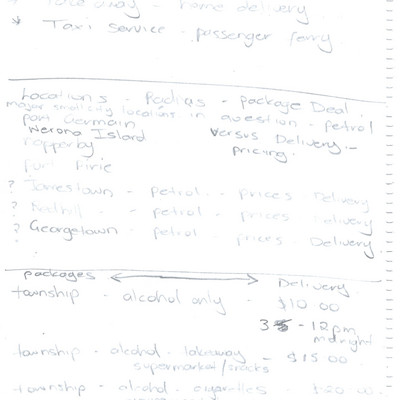 * Take away - home delivery
* Taxi Service - passenger ferry
Locations - Radius - package Deal.
major small city locations in question - petrol
Port Germain
Weroona Island versus Delivery -
Napperby pricing.
Port Pirie
? Jamestown - petrol - prices Delivery
? Redhill - petrol - prices Delivery
? Georgetown - petrol - prices - Delivery
packages Delivery
township - alcohol only - $10 00
3 - 12pm
midnight
township - alcohol - takeaway - $15 00
supermarket/snacks
township - alcohol - cigarettes - $20 00